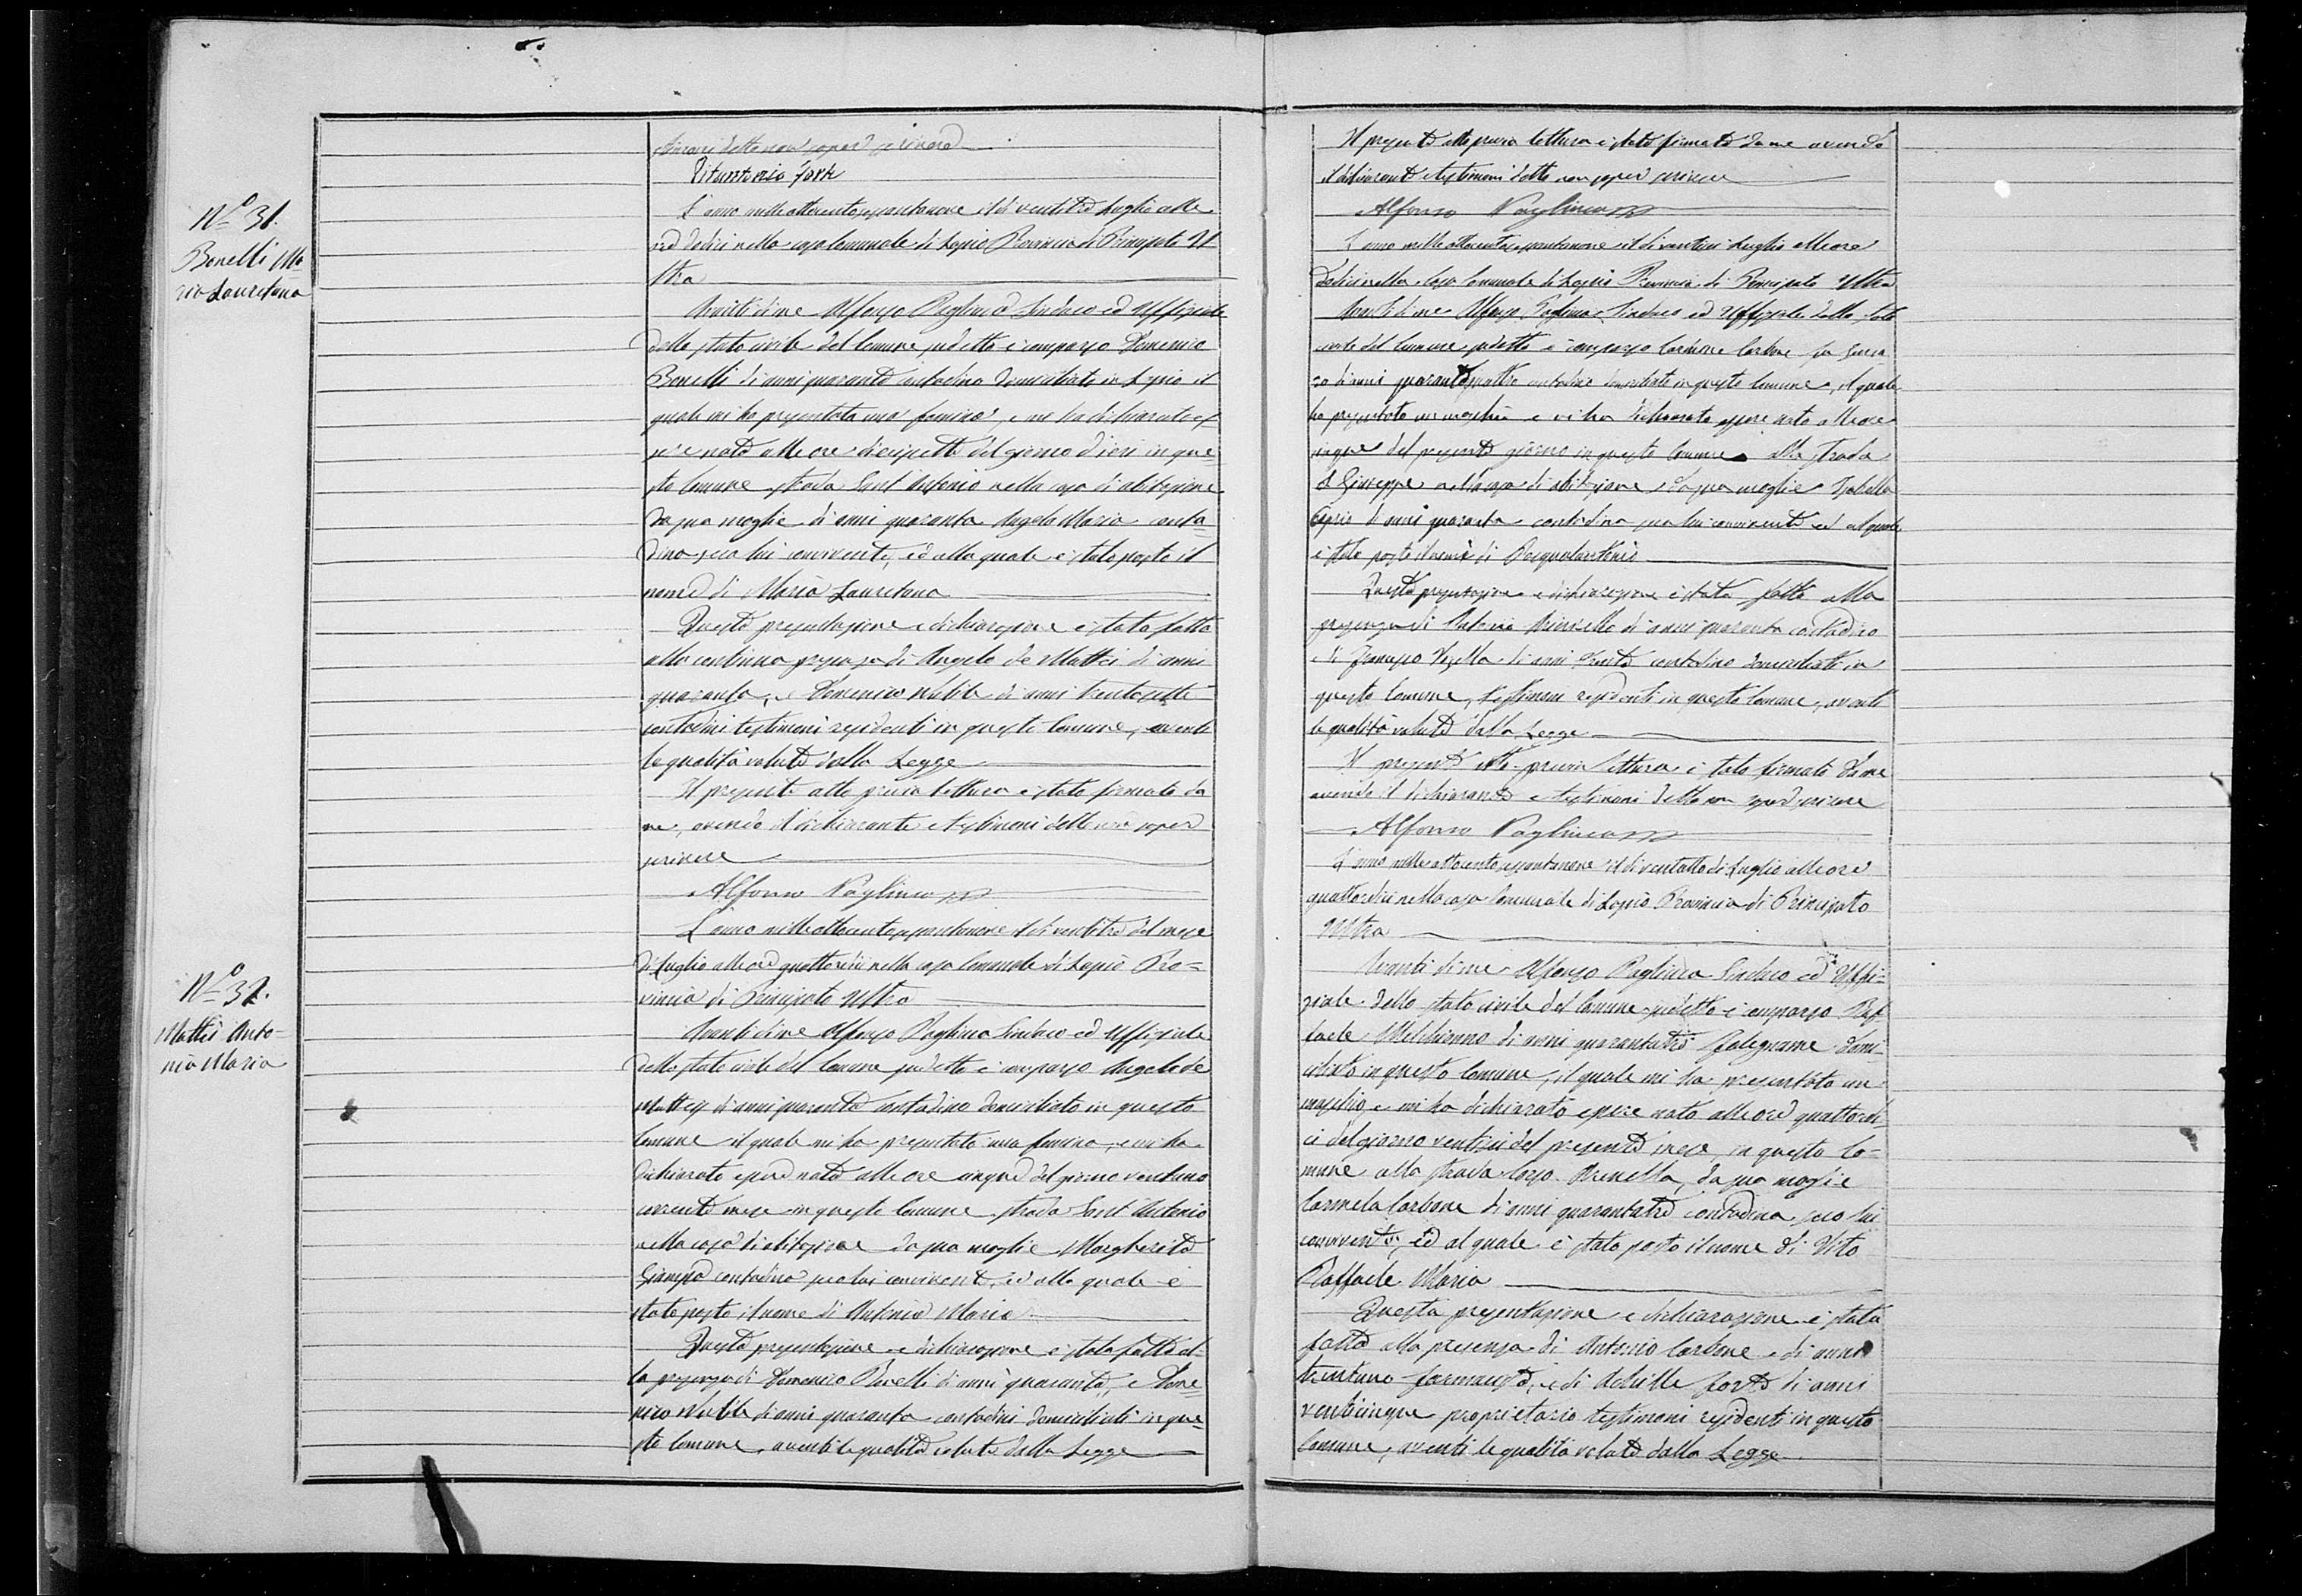 timoni detto non saper scrivere
Vitantonio Forte
Nº 31.
Bonelli Ma
ria Lauretana
L'anno mille ottocento sessantanove il dì ventitre Luglio alle
ore dodici nella casa Comunale di Lapio Provincia di Principato Ul
tra
Avanti di me Alfonso Pagliuca Sindaco ed Uffiziale
dello stato civile del Comune sudetto è comparso Domenico
Bonelli di anni quaranta contadino domiciliato in Lapio il
quale mi ha presentata una femina, e mi ha dichiarato es
sere nata alle ore diecisette del giorno d'ieri in que
sto Comune strada Sant'Antonio nella casa di abitazione
da sua moglie di anni quaranta Angela Maria conta
dina seco lui convivente, ed alla quale è stato posto il
nome di Maria Lauretana
Questa presentazione e dichiarazione è stata fatta
alla continua presenza di Angelo de Mattei di anni
quaranta, e Domenico Nobile di anni trentasette
contadini testimoni residenti in questo Comune, aventi
le qualità volute dalla Legge
Il presente atto previa lettura è stato firmato da
me, avendo il dichiarante e testimoni detto non saper
scrivere
Alfonso Pagliuca
Nº 32.
Mattei Anto-
nia Maria
L'anno mille ottocento sessantanove il dì ventitre del mese
di Luglio alle ore quattordici nella casa Comunale di Lapio Pro=
vincia di Principato Ultra
Avanti di me Alfonso Pagliuca Sindaco ed Uffiziale
dello stato civile del Comune sudetto è comparso Angelo de
Matteis di anni quaranta contadino domiciliato in questo
Comune il quale mi ha presentata una femina, e mi ha
dichiarato essere nata alle ore cinque del giorno ventuno
corrente mese in questo Comune strada Sant'Antonio
nella casa di abitazione da sua moglie Margherita
contadina seco lui convivente, ed alla quale è
stato posto il nome di Antonia Maria
Questa presentazione e dichiarazione è stata fatta al
la presenza di Domenico Bonelli di anni quaranta, e Dome
nico Nobile di anni quaranta contadini domiciliati in que
sto Comune, aventi le qualità volute dalla Legge
Il presente atto previa lettura è stato firmato da me avendo
il dichiarante e testimoni detto non saper scrivere
Alfonso Pagliuca
L'anno mille ottocento sessantanove il dì ventisei Luglio alle ore
dodici nella casa Comunale di Lapio Provincia di Principato Ultra
Avanti di me Alfonso Pagliuca Sindaco ed Uffiziale dello stato
civile del Comune sudetto è comparso Carbone fu
di anni quarantaquattro contadino domiciliato in questo Comune, il quale
ha presentato un maschio e mi ha dichiarato essere nato alle ore
cinque del presente giorno in questo Comune alla strada
S. Giuseppe nella casa di abitazione da sua moglie Isabella
di anni quaranta contadina seco lui convivente ed al quale
è stato posto il nome di Pasqualantonio
Questa presentazione e dichiarazione è stata fatta alla
presenza di Antonio di anni quaranta contadino
e di di anni trenta contadino domiciliati in
questo Comune, testimoni residenti in questo Comune, aventi
le qualità volute dalla Legge
Il presente atto previa lettura è stato firmato da me
avendo il dichiarante e testimoni detto non saper scrivere
Alfonso Pagliuca
L'anno mille ottocento sessantanove il dì ventotto di Luglio alle ore
quattordici nella casa Comunale di Lapio Provincia di Principato
Ultra
Avanti di me Alfonso Pagliuca Sindaco ed Uffi=
ziale dello stato civile del Comune sudetto è comparso Raf
faele Melchionno di anni quarantatre falegname domi-
ciliato in questo Comune, il quale mi ha presentato un
maschio, e mi ha dichiarato essere nato alle ore quattordi
ci del giorno ventisei del presente mese, in questo Co=
mune alla strada Corso Arenella, da sua moglie
Carmela Carbone di anni quarantatre contadina seco lui
convivente, ed al quale è stato posto il nome di Vito
Raffaele Maria
Questa presentazione e dichiarazione è stata
fatta alla presenza di Antonio Carbone di anni
trentuno farmacista, e di Achille Forte di anni
venticinque proprietario testimoni residenti in questo
Comune, aventi le qualità volute dalla Legge